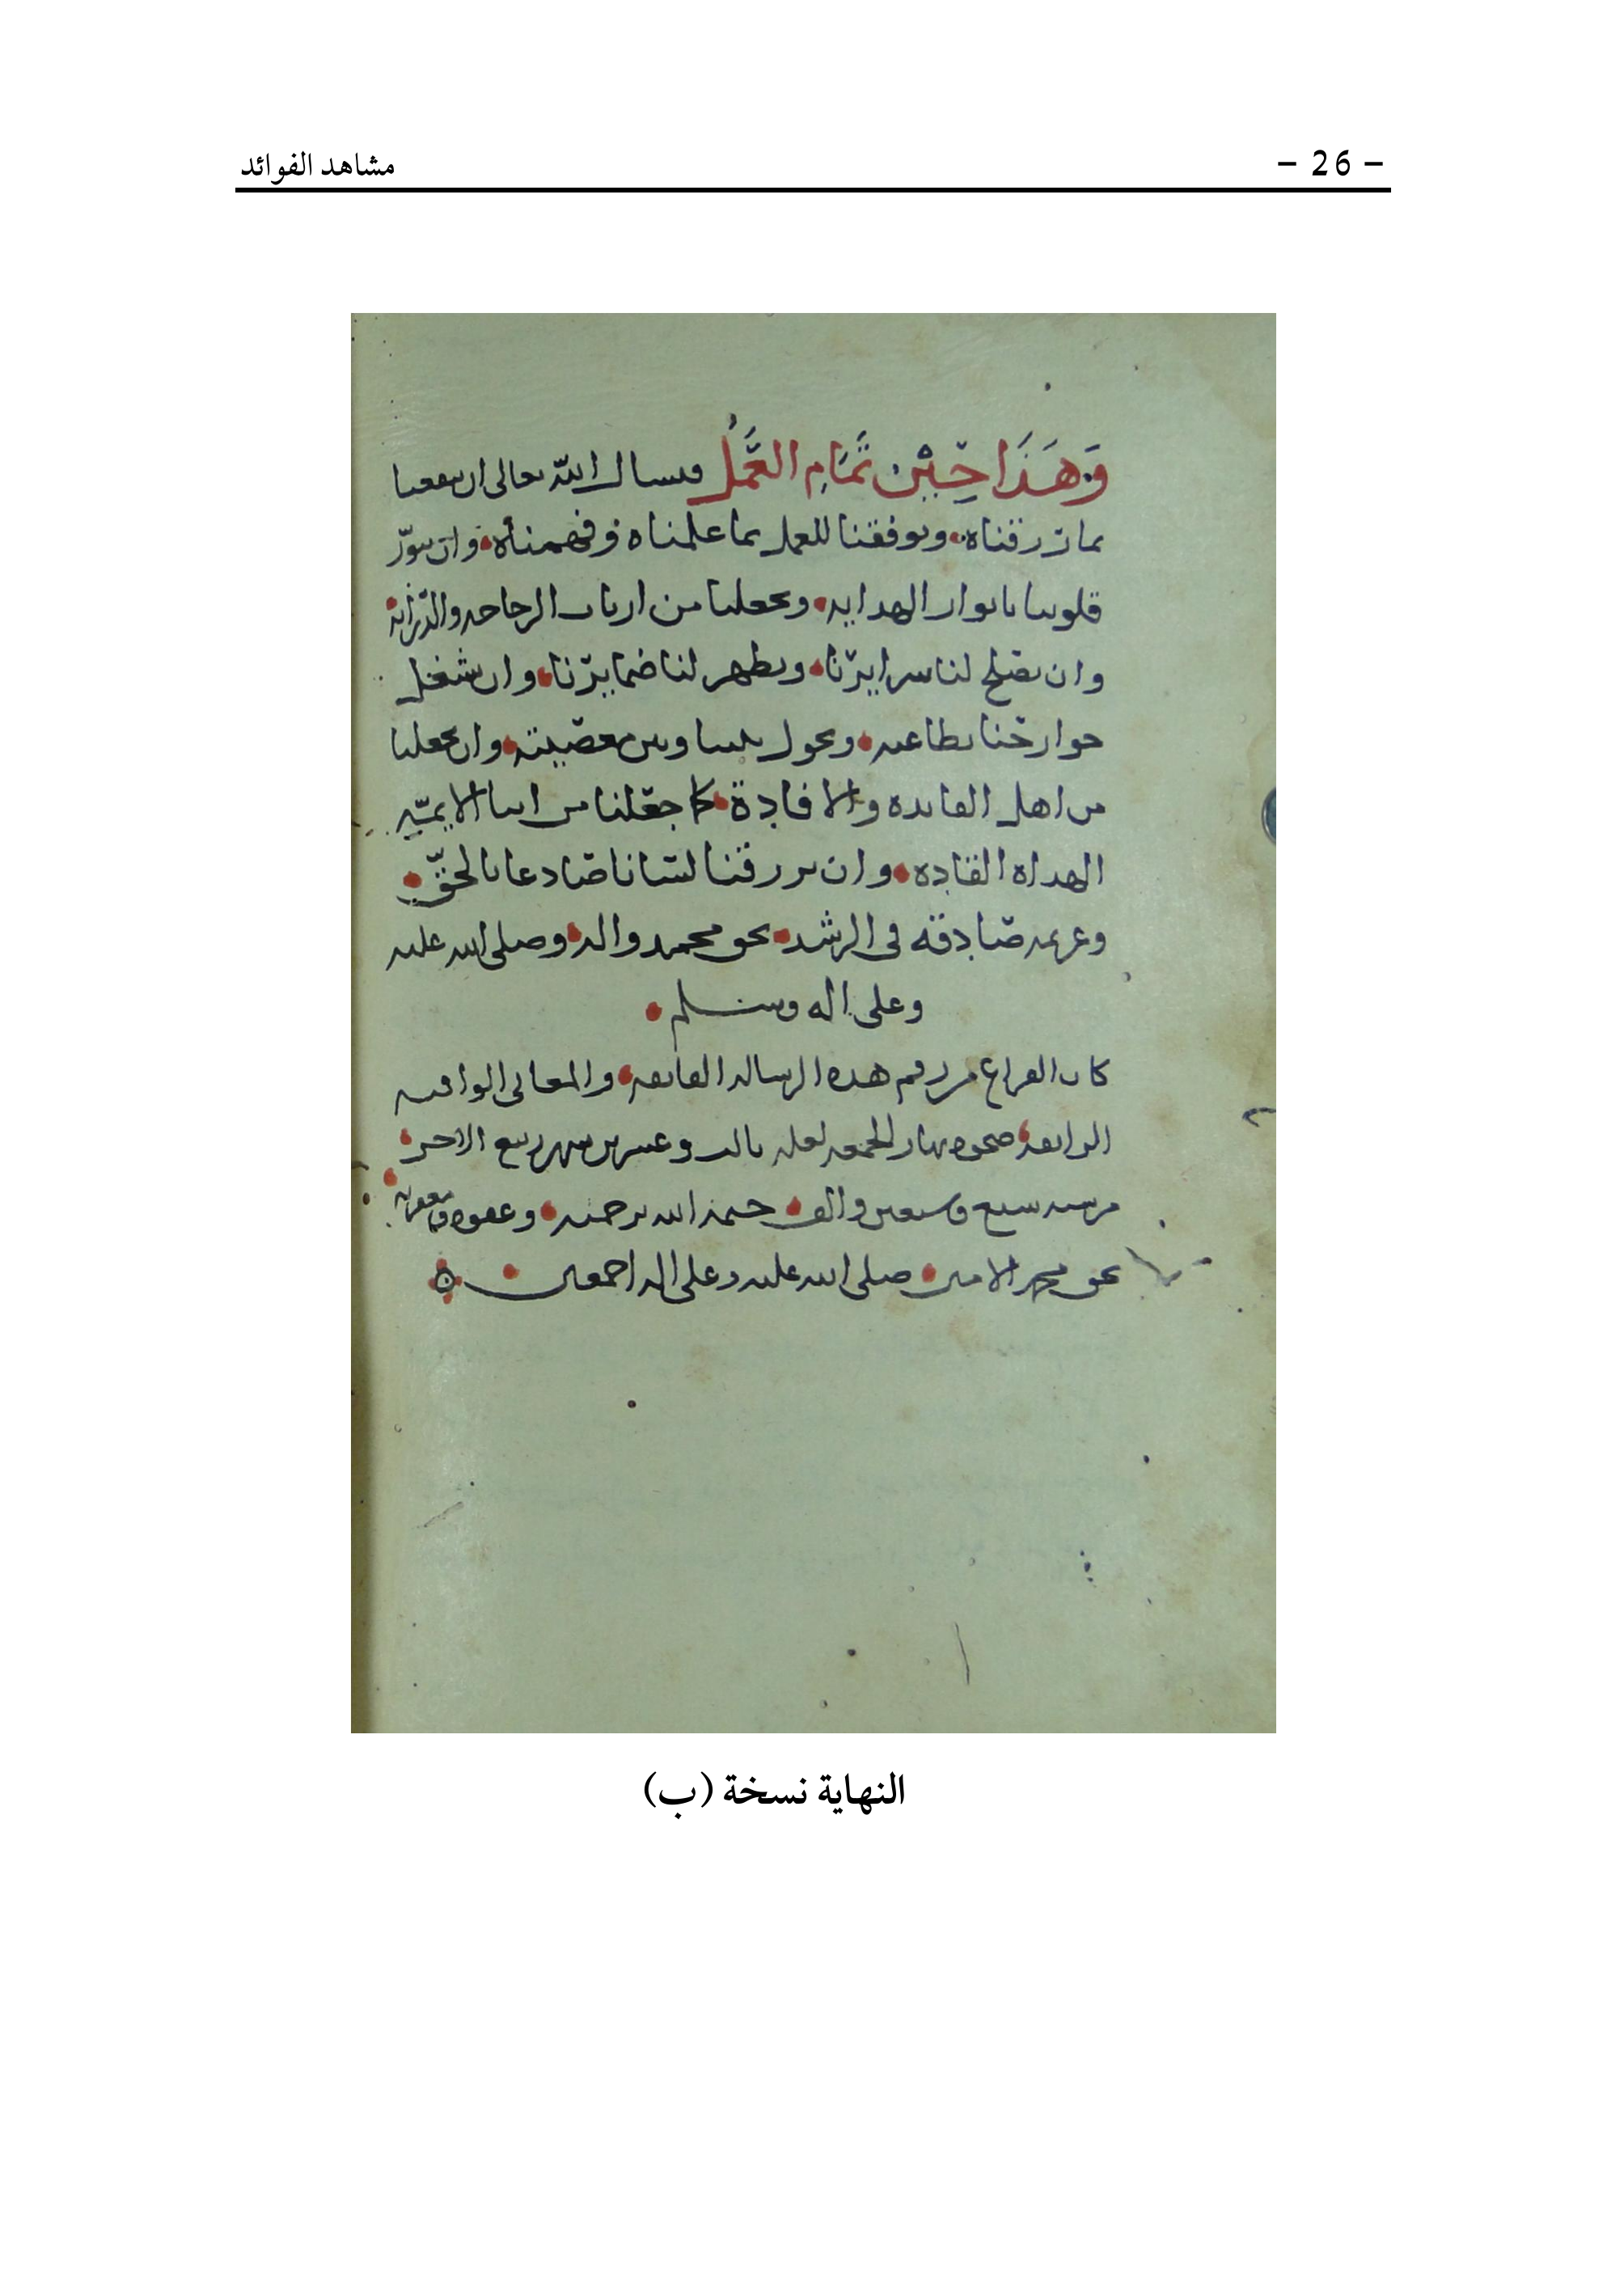 – 26 –
مشاهد الفوائد
وَهَذَا حِيْنَ تَمَامِ العَمَلِ فنسال الله تعالى ان ينفعنا
بما رزقناه وبوفقنا للعمل بما علمناه وفهمناه وان ينوّر
قلوبنا بانوار الهدايه ويجعلنا من ارباب الرجاحه والدّرايه
وان يصلح لنا سرايرنا ويطهر لنا ضمايرنا وان يشغل
جوارحنا بطاعته ويحول بيننا وبين معصيته وان يجعلنا
من اهل الفايده والافادة كما جعلنا من ابنا الايمّه
الهداه القاده وان يرزقنا لسانا صادعا بالحقّ
وعزيمه صادقه في الرشد بحق محمد واله وصلى الله عليه
وعلى اله وسلم
كان الفراغ من رقم هذه الرساله الفايقه والمعاني الوافيه
الرايقه ضحوه نهار الجمعه لعله ثالث وعشرين شهر ربيع الاخر
من سنه سبع وسبعين والف ختمها الله برحمته وعفوه ومغفرته
بحق محمد الامين صلى الله عليه وعلى اله اجمعين
النهاية نسخة (ب)